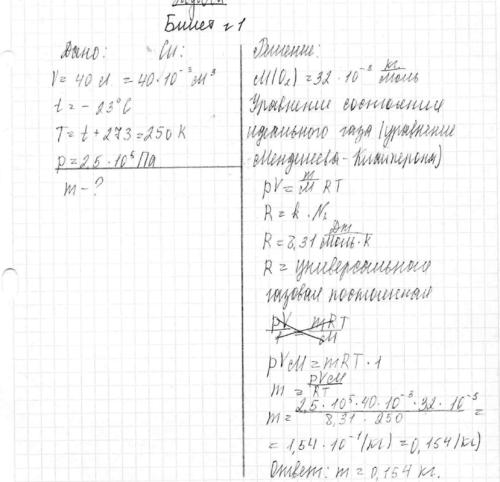 Билет № 1
Дано:
Си:
V = 40 л = 40·10⁻³ м³
t = -23°C
T = t + 273 = 250 K
p = 2,5·10⁵ Па
m - ?
Решение:
M(O₂) = 32·10⁻³ кг/моль
Уравнение состояния
идеального газа (уравнение
Менделеева-Клайперона)
pV = m/M RT
R = k·Nₐ
R = 8,31 Дж/моль·К
R = Универсальная
газовая постоянная
pV/1 = mRT/M
pVM = mRT·1
m = pVM/RT
m = 2,5·10⁵·40·10⁻³·32·10⁻³/8,31·250 =
= 1,54·10⁻¹(кг) = 0,154(кг)
Ответ: m = 0,154 кг.